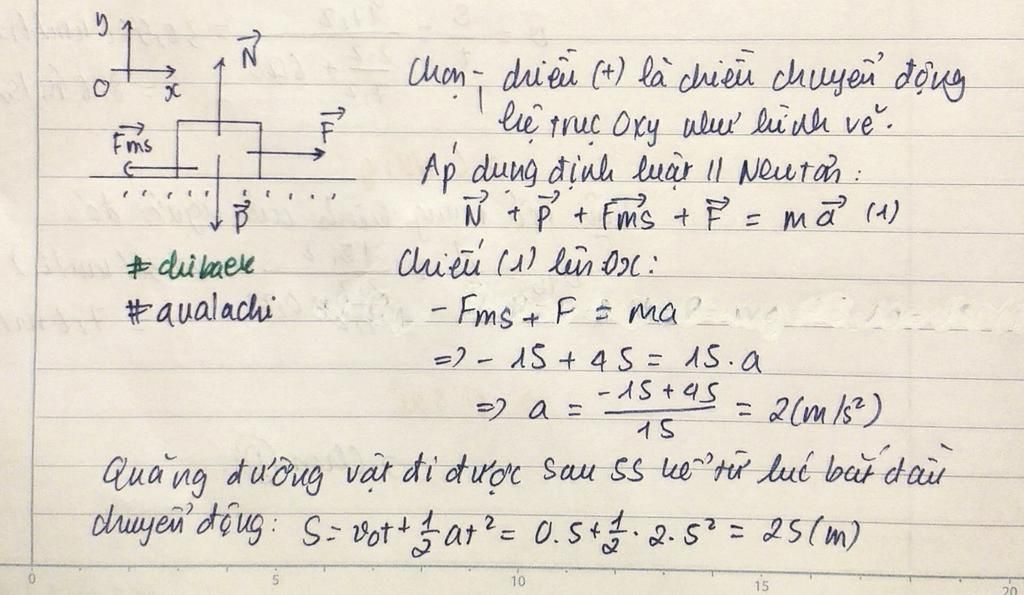 y
O
x
N⃗
F⃗ms
F⃗
P⃗
#chibaek
#aualachi
Chọn chiều (+) là chiều chuyển động
hệ trục Oxy như hình vẽ.
Áp dụng định luật II Newton:
N⃗ + P⃗ + F⃗ms + F⃗ = ma⃗ (1)
Chiếu (1) lên Ox:
-Fms + F = ma
=> - 15 + 45 = 15.a
=> a = (-15 + 45)/15 = 2 (m/s²)
Quãng đường vật đi được sau 5s kể từ lúc bắt đầu
chuyển động: S = v₀t + 1/2 at² = 0.5 + 1/2 . 2.5² = 25 (m)
0 5 10 15 20